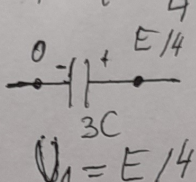 4
0 - + E/4
3C
U₁ = E/4